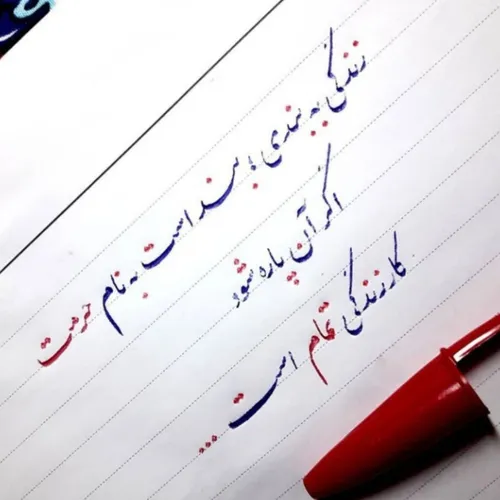 زندگی به بندی ، بند است به نام حرمت
اگر آن پاره شود
کار زندگی تمام است ...